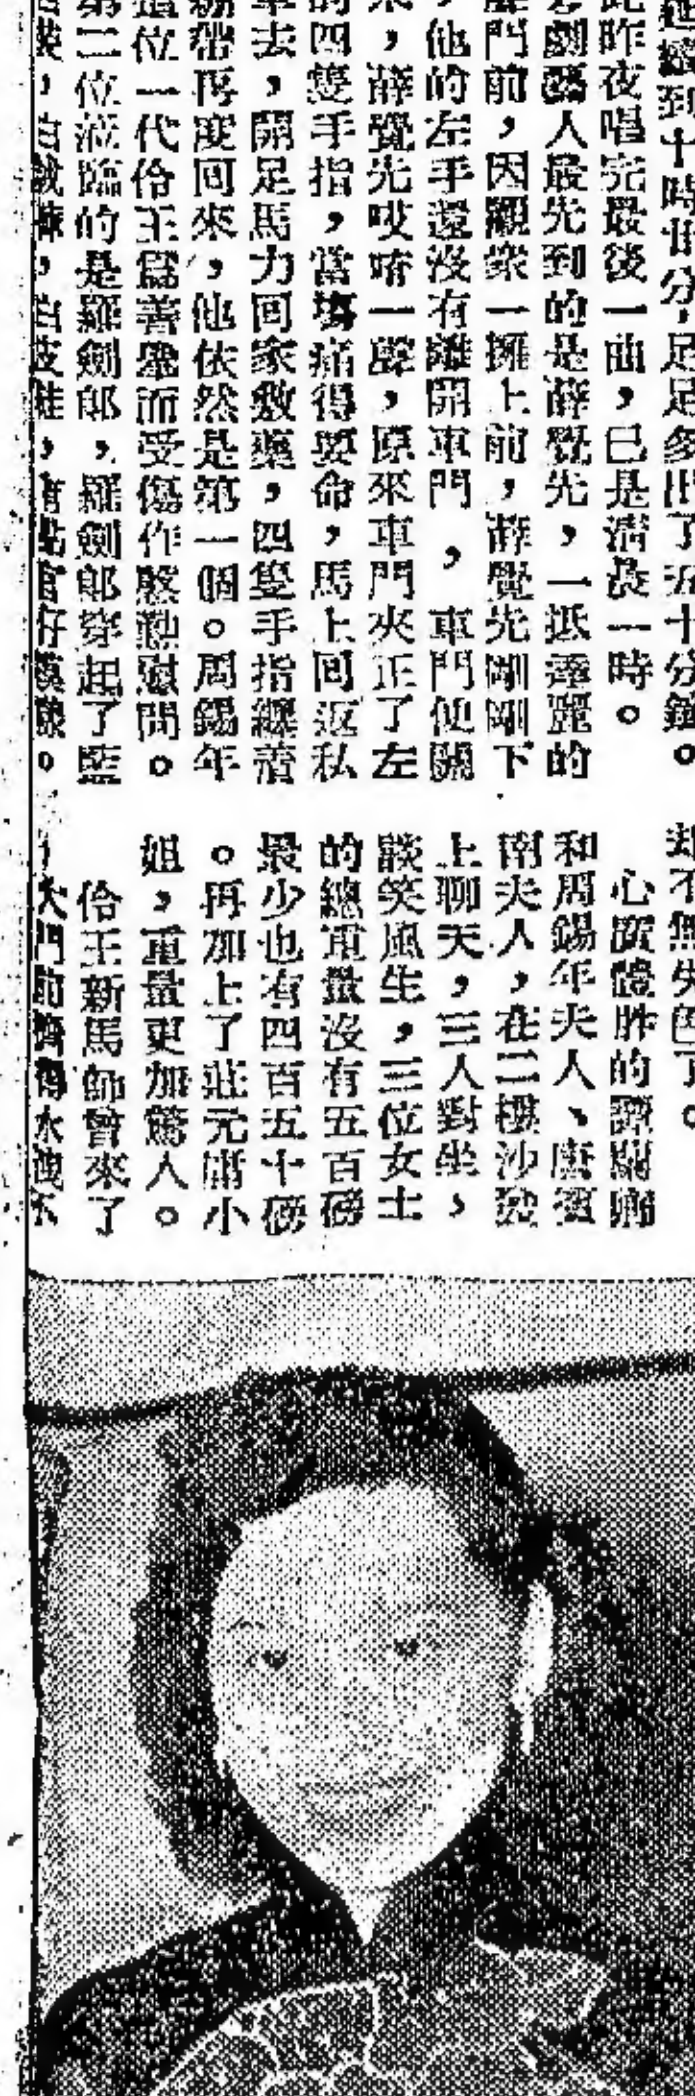 到十時廿分，足足多出了五十分鐘。
昨夜唱完最後一曲，已是清晨一時。
劇藝人最先到的是薛覺先，一抵達麗的
門前，因觀衆一擁上前，薛覺先剛剛下
，他的左手還沒有離開車門，車門便關
，薛覺先哎唷一聲，原來車門夾正了左
的四隻手指，當塲痛得要命，馬上回返私
車去，開足馬力回家敷藥，四隻手指纏着
綳帶再度回來，他依然是第一個。周錫年
這位一代伶王爲善舉而受傷作慇懃慰問。
第二位蒞臨的是羅劍郎，羅劍郎穿起了藍
，白皮鞋，
却不無失色了。
心廣體胖的譚蘭卿
和周錫年夫人、唐
南夫人，在二樓沙
上聊天，三人對坐，
談笑風生，三位女士
的總重量沒有五百磅
最少也有四百五十磅
。再加上了莊元庸小
姐，重量更加驚人。
伶王新馬師曾來了
，大門前擠得水洩不